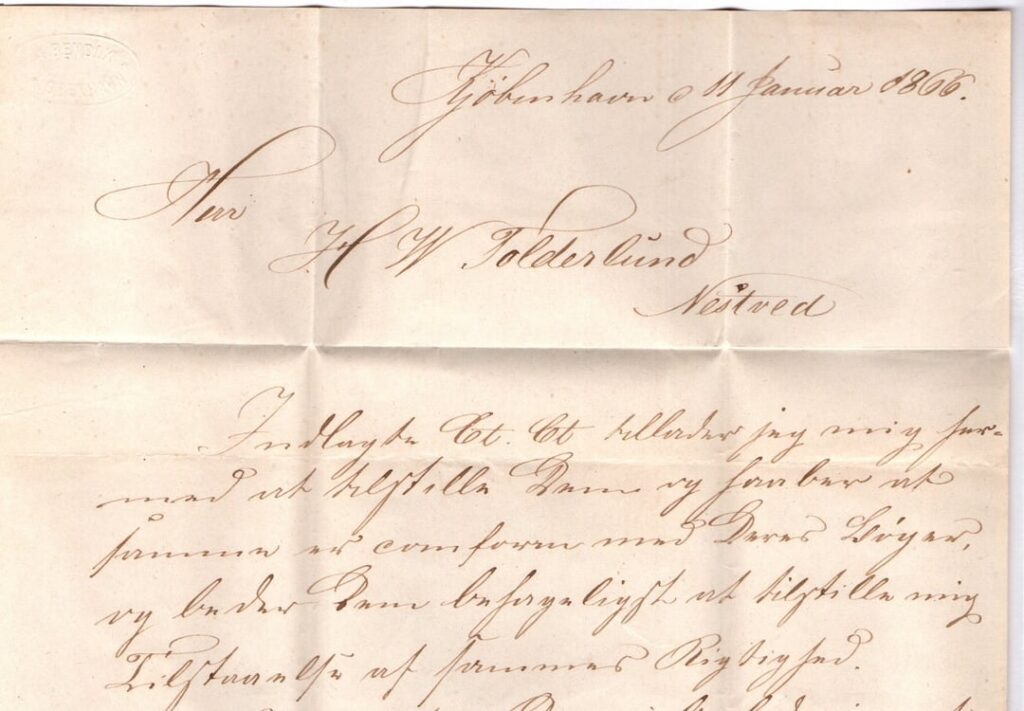 Kjöbenhavn d 11 Januar 1866.
Herr
H W Tolderlund
Nestved
Indlagte Ct. Ct tillader jeg mig her=
med at tilstille Dem og haaber at
samme er comform med Deres Bøger,
og beder Dem behageligst at tilstille mig
Tilstaaelse af sammes Rigtighed.